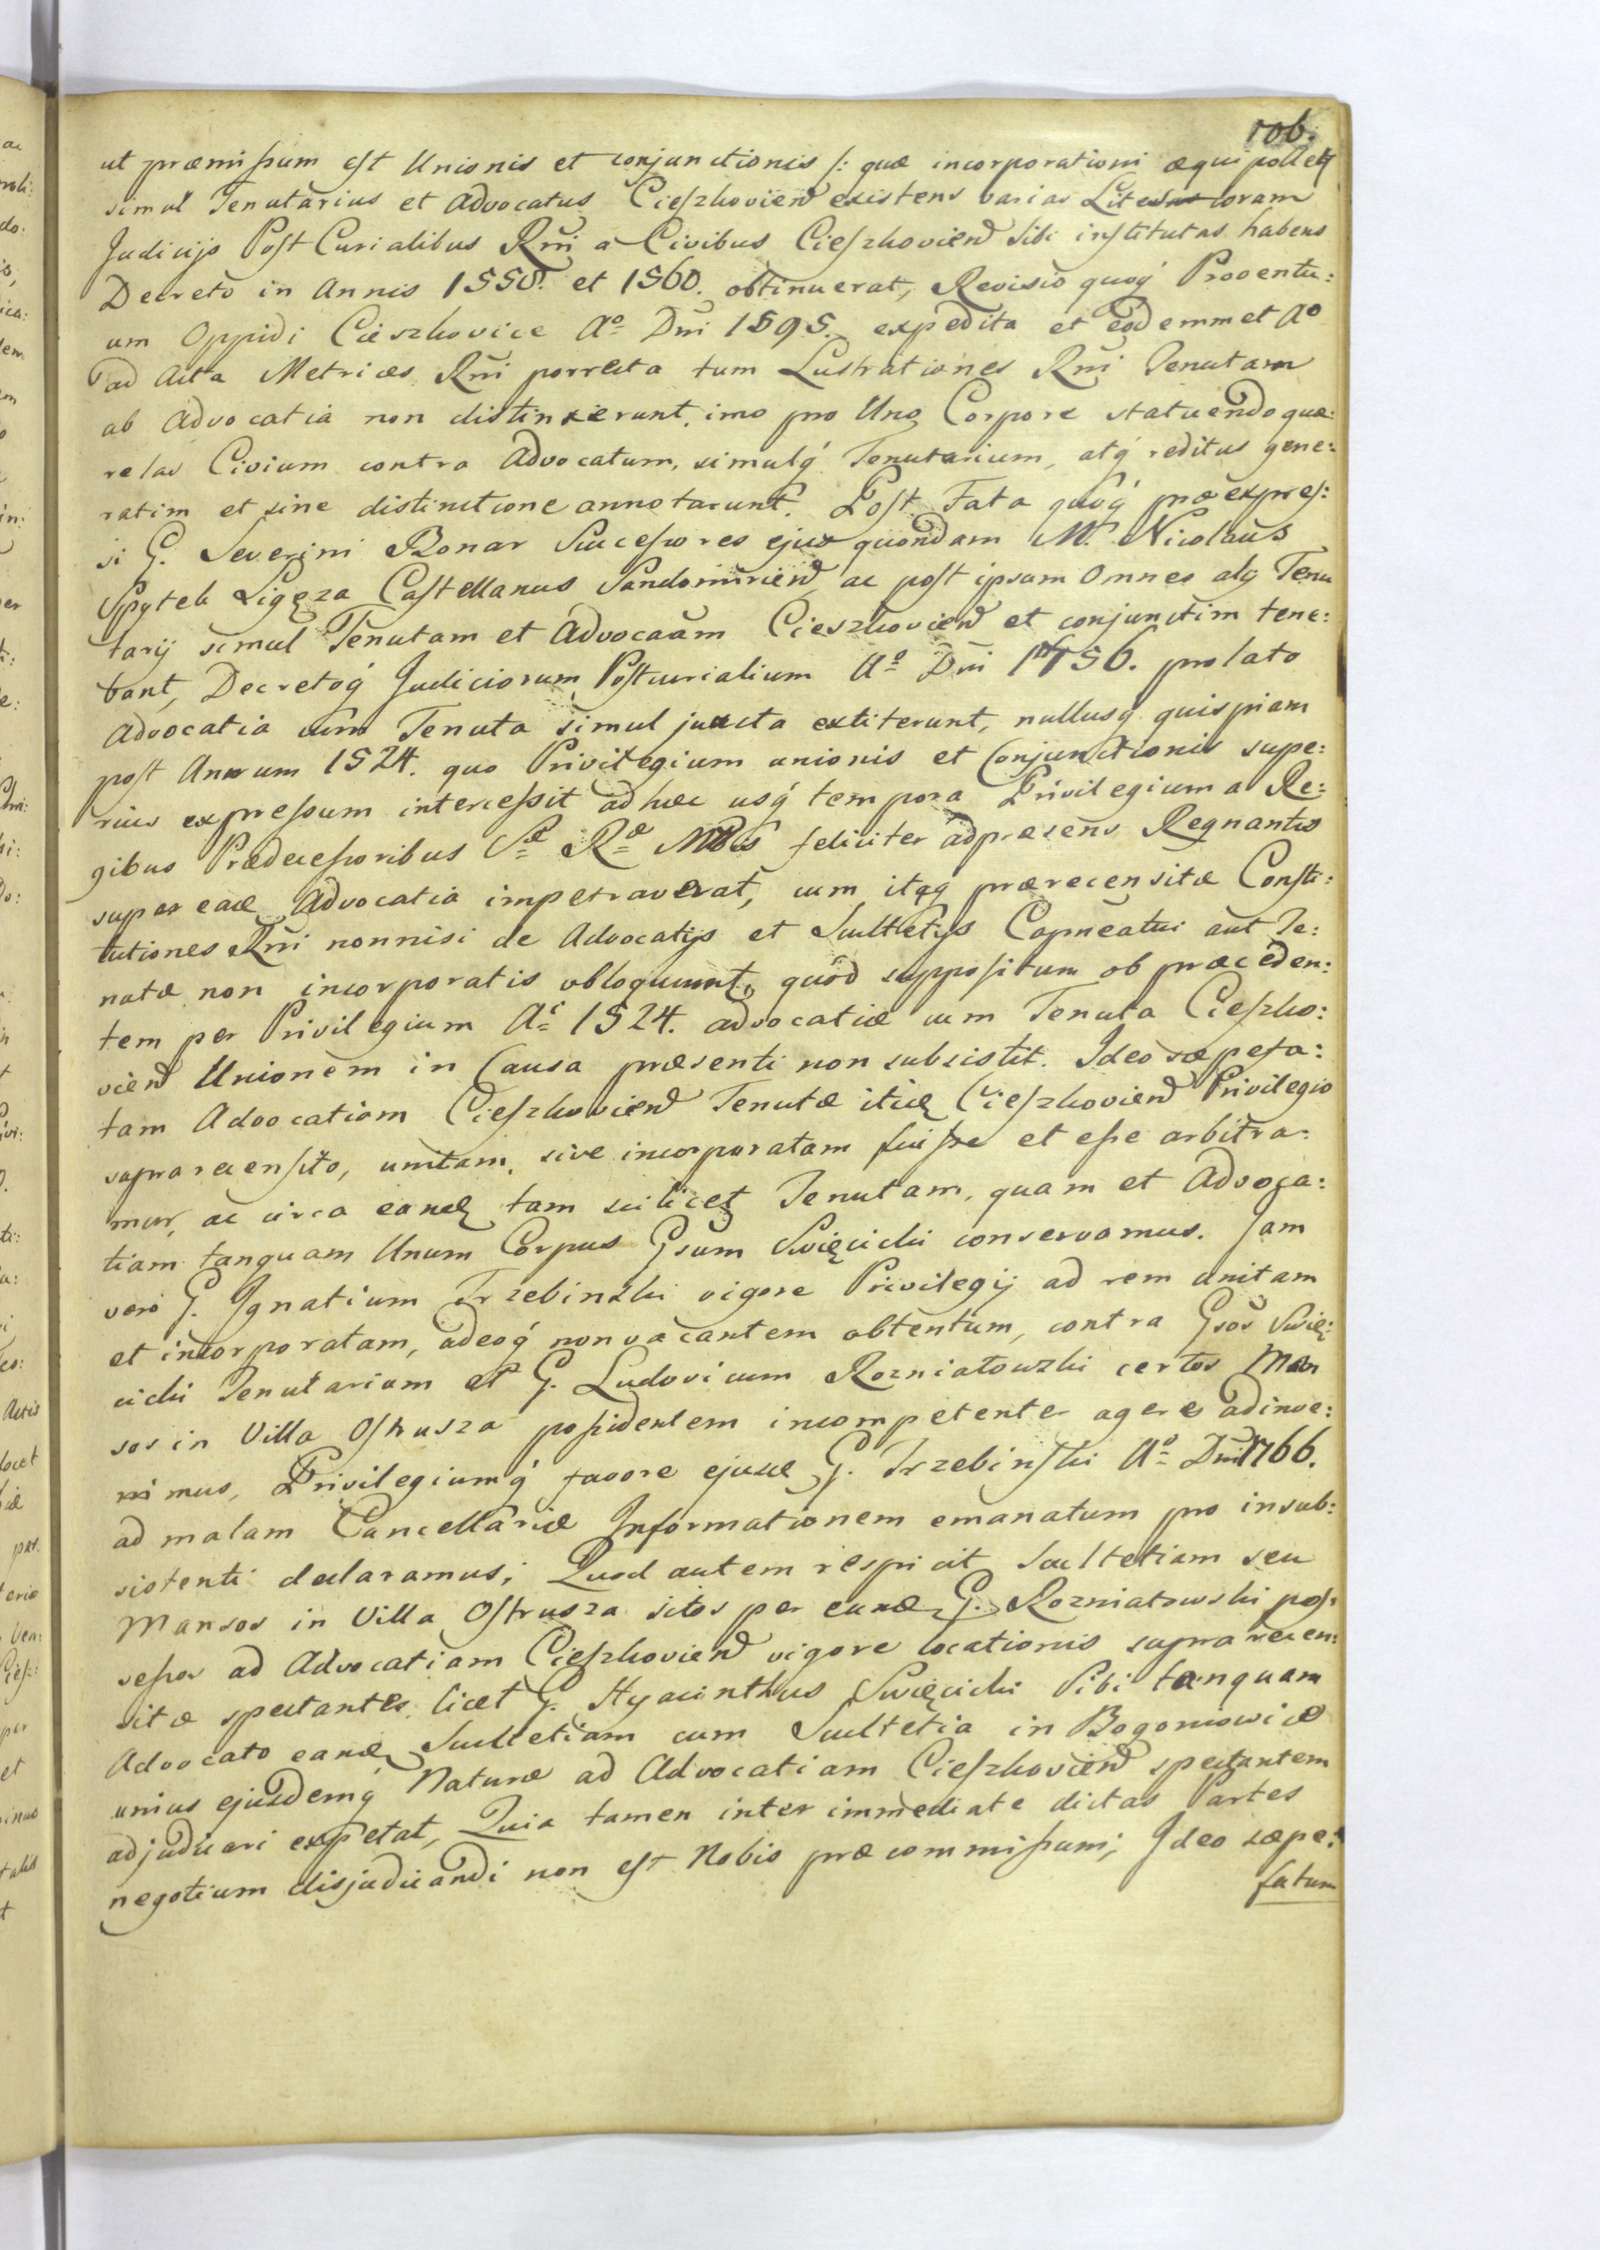 106.
ut præmissum est Unionis et conjunctionis /: quæ incorporationi æquipollet
simul Tenutarius et Advocatus Cieszkovien existens varias Lites coram
Judicijs Post Curialibus Rni a Civibus Cieszkovien sibi institutas habens
Decreto in Annis 1558. et 1560. obtinuerat, Revisio quoq́ Proventu:
um Oppidi Cieszkovice Aº Dni 1595. expedita et eodemmet Aº
ad Acta Metrices Rni porrecta tum Lustrationes Rni Tenutam
ab Advocatia non distinxerunt, imo pro Uno Corpore statuendo quæ:
relas Civium contra Advocatum, simulq́ Tenutarium, atq́ reditus gene:
ratim et sine distinctione annotarunt. Post Fata quoq́ præexpres:
si G. Severini Bonar Successores ejus quondam M. Nicolaus
Spytek Ligęza Castellanus Sandomirien ac post ipsum Omnes alij Tenu
tarij simul Tenutam et Advocaam Cieszkovien et conjunctim tene:
bant, Decretoq́ Judiciorum Postcurialium Aº Dni 1756. prolato
Advocatia cum Tenuta simul juncta extiterunt, nullusq́ quispiam
post Annum 1524. quo Privilegium unionis et Conjunctionis supe:
rius expressum intercessit ad hæc usq́ tempora Privilegium a Re:
gibus Prædecessoribus Sæ Ræ Mtis feliciter ad præsens Regnantis
super eadē Advocatia impetraverat, cum itaq́ prærecensitæ Consti:
tutiones Rni nonnisi de Advocatijs et Scultetijs Capneatui aut Te:
nutæ non incorporatis obloquunt, quod suppositum ob præceden:
tem per Privilegium Ai 1524. advocatiæ cum Tenuta Cieszko:
vien Unionem in Causa præsenti non subsistit. Ideo sæpefa:
tam Advocatiam Cieszkovien Tenutæ itidē Cieszkovien Privilegio
suprarecensito, unitam, sive incorporatam fuisse et esse arbitra:
mur, ac circa eandē tam scilicet Tenutam, quam et Advoca:
tiam tanquam Unum Corpus Gsum Święcicki conservamus. Jam
vero G. Ignatium Trzebinski vigore Privilegij ad rem unitam
et incorporatam, adeoq́ non vacantem obtentum, contra Gsos Świę:
cicki Tenutarium et G. Ludovicum Rozniatowski certos Man
sos in Villa Ostrusza possidentem incompetenter agere adinve:
nimus, Privilegiumq́ favore ejusdē G. Trzebinski Aº Dni 1766.
ad malam Cancellariæ Informationem emanatum pro insub:
sistenti declaramus; Quod autem respicit Scultetiam seu
Mansos in Villa Ostrusza sitos per eundē G. Rozniatowski pos:
sessos ad Advocatiam Cieszkovien vigore locationis suprarecen:
sitæ spectantes, licet G. Hyacinthus Święcicki Sibi tanquam
Advocato eandē Scultetiam cum Scultetia in Bogoniowice
unius ejusdemq́ Naturæ ad Advocatiam Cieszkovien spectantem
adjudicari expetat, Quia tamen inter immediate dictas Partes
negotium disjudicandi non est Nobis præcommissum; Ideo sæpe:
fatum